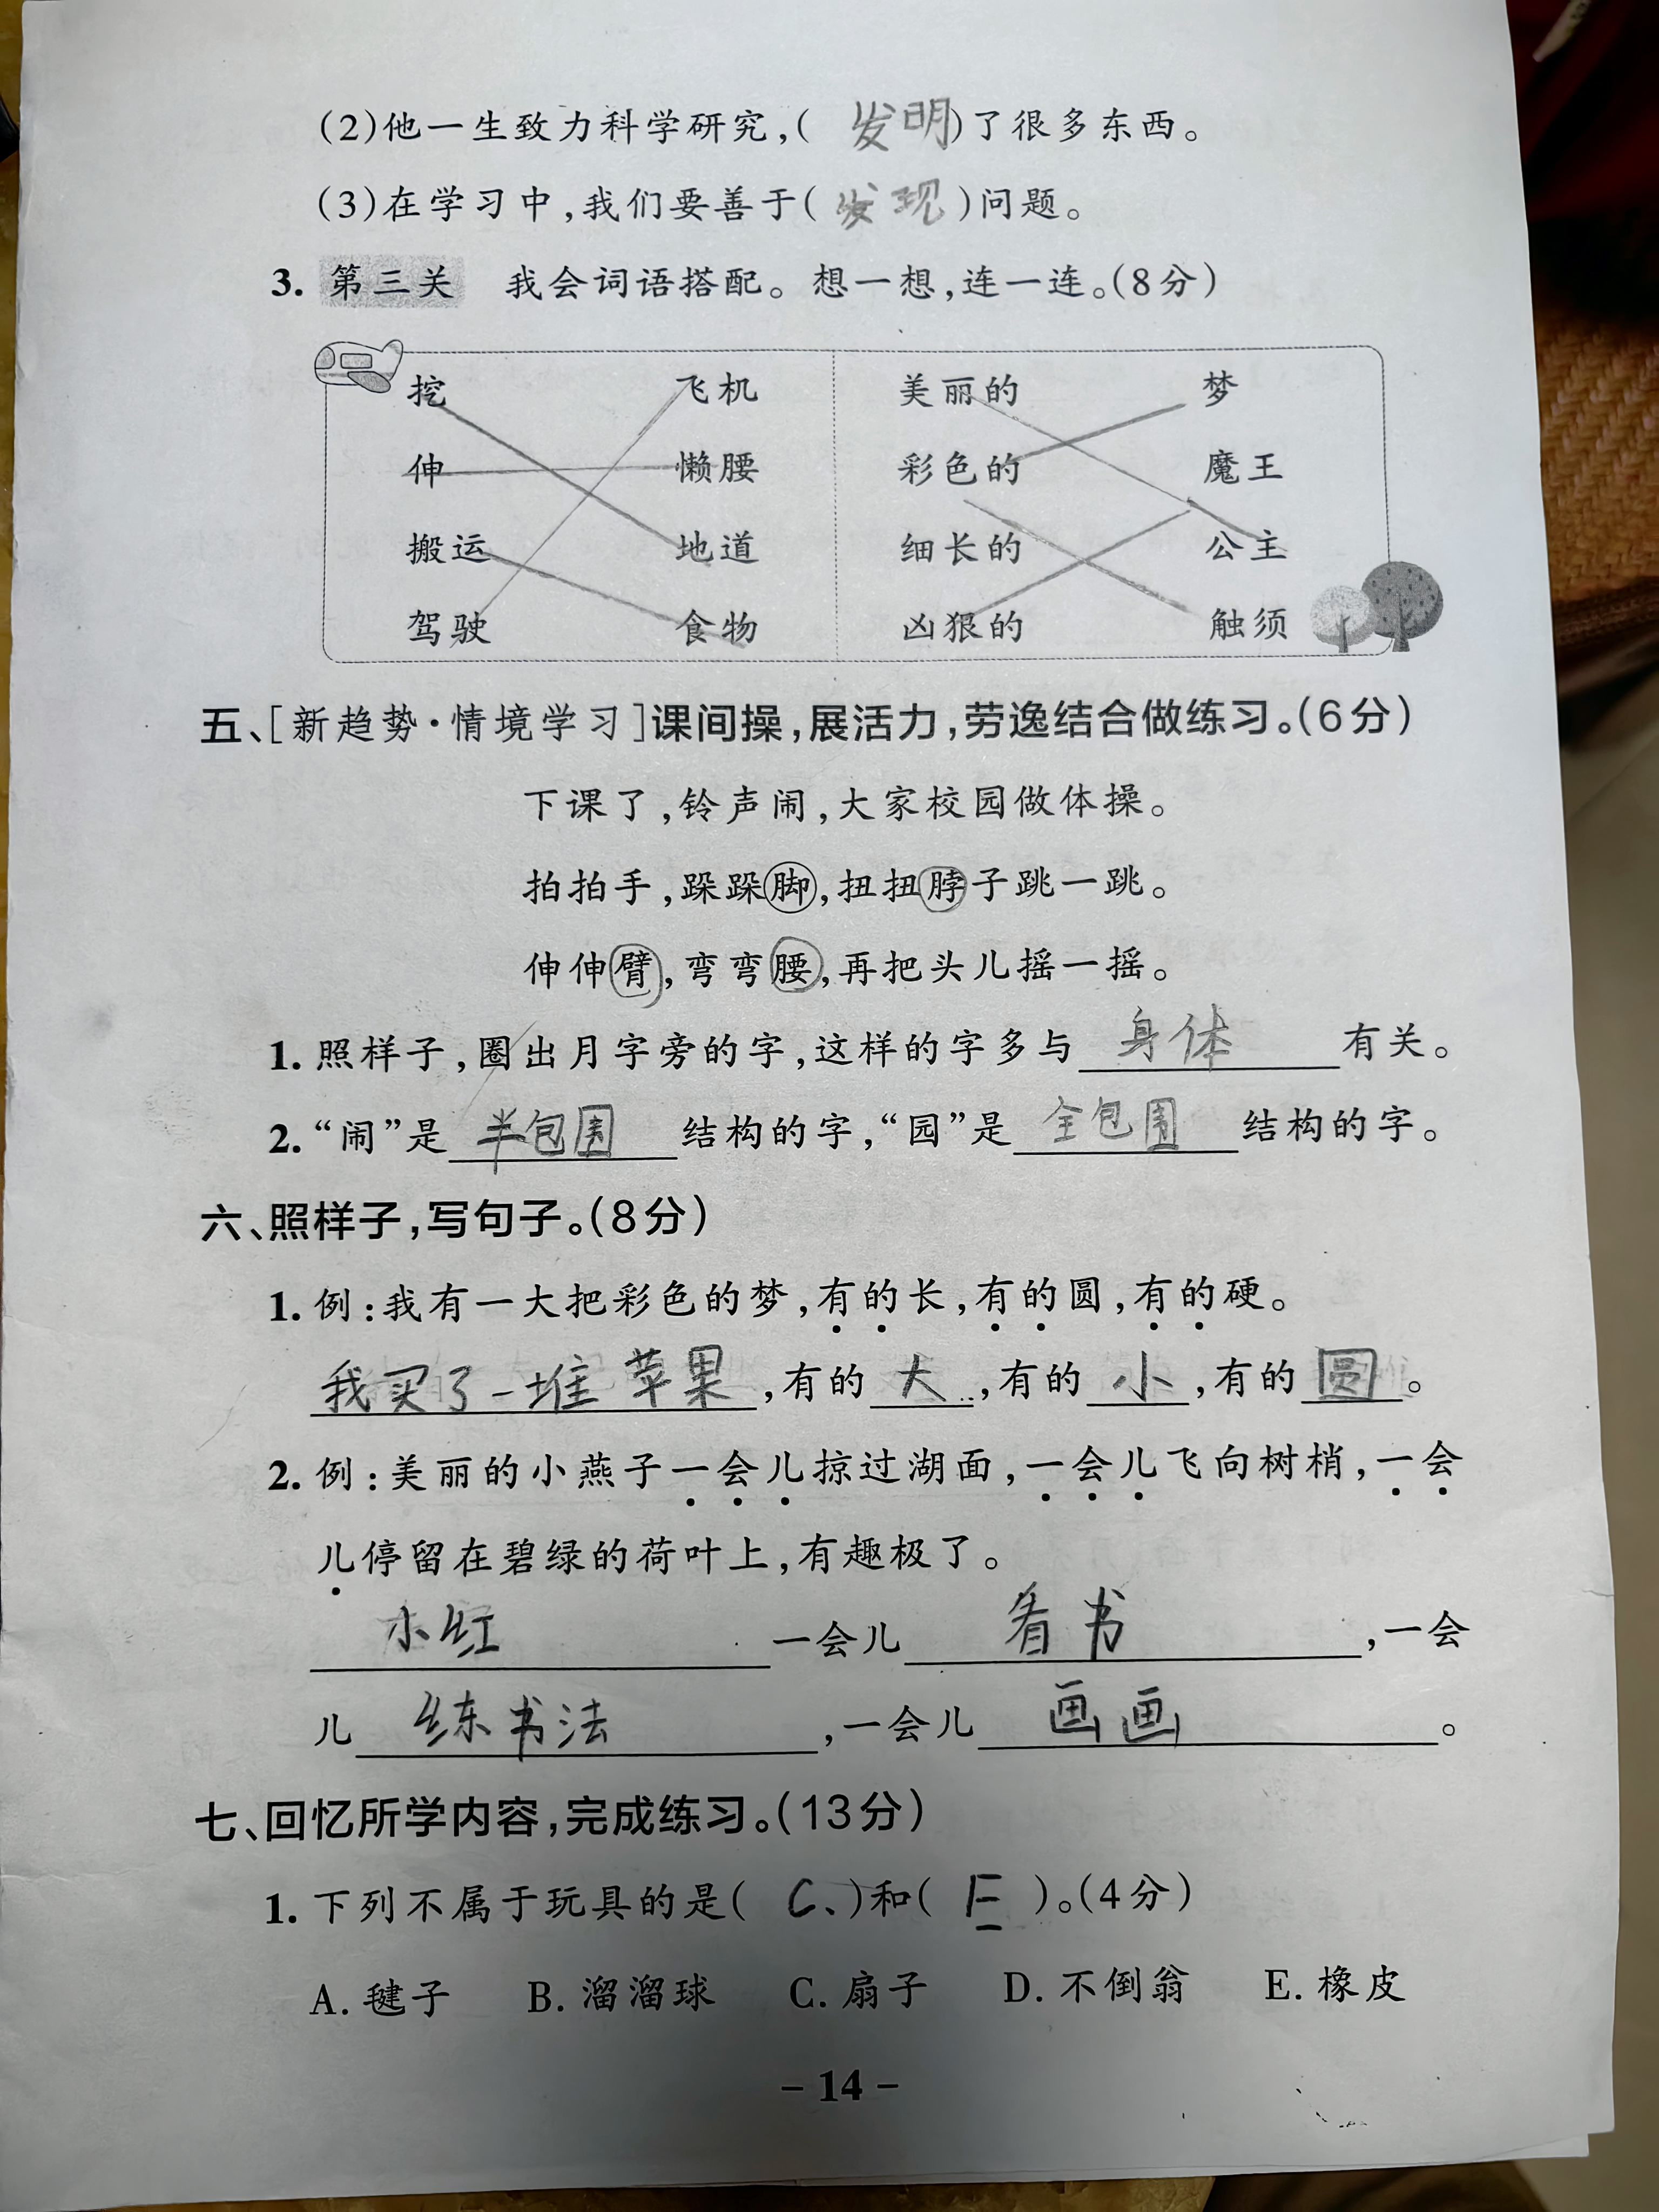 (2)他一生致力科学研究,(发明)了很多东西。
(3)在学习中,我们要善于(发现)问题。
3. 第三关 我会词语搭配。想一想,连一连。(8分)
挖 飞机 美丽的 梦
伸 懒腰 彩色的 魔王
搬运 地道 细长的 公主
驾驶 食物 凶狠的 触须
五、[新趋势·情境学习]课间操,展活力,劳逸结合做练习。(6分)
下课了,铃声闹,大家校园做体操。
拍拍手,跺跺脚,扭扭脖子跳一跳。
伸伸臂,弯弯腰,再把头儿摇一摇。
1. 照样子,圈出月字旁的字,这样的字多与 身体 有关。
2. “闹”是 半包围 结构的字,“园”是 全包围 结构的字。
六、照样子,写句子。(8分)
1. 例:我有一大把彩色的梦,有的长,有的圆,有的硬。
我买了一堆苹果,有的 大,有的 小,有的 圆。
2. 例:美丽的小燕子一会儿掠过湖面,一会儿飞向树梢,一会
儿停留在碧绿的荷叶上,有趣极了。
小红 一会儿 看书,一会
儿 练书法,一会儿 画画。
七、回忆所学内容,完成练习。(13分)
1. 下列不属于玩具的是( C、)和( E )。(4分)
A. 毽子 B. 溜溜球 C. 扇子 D. 不倒翁 E. 橡皮
－14－